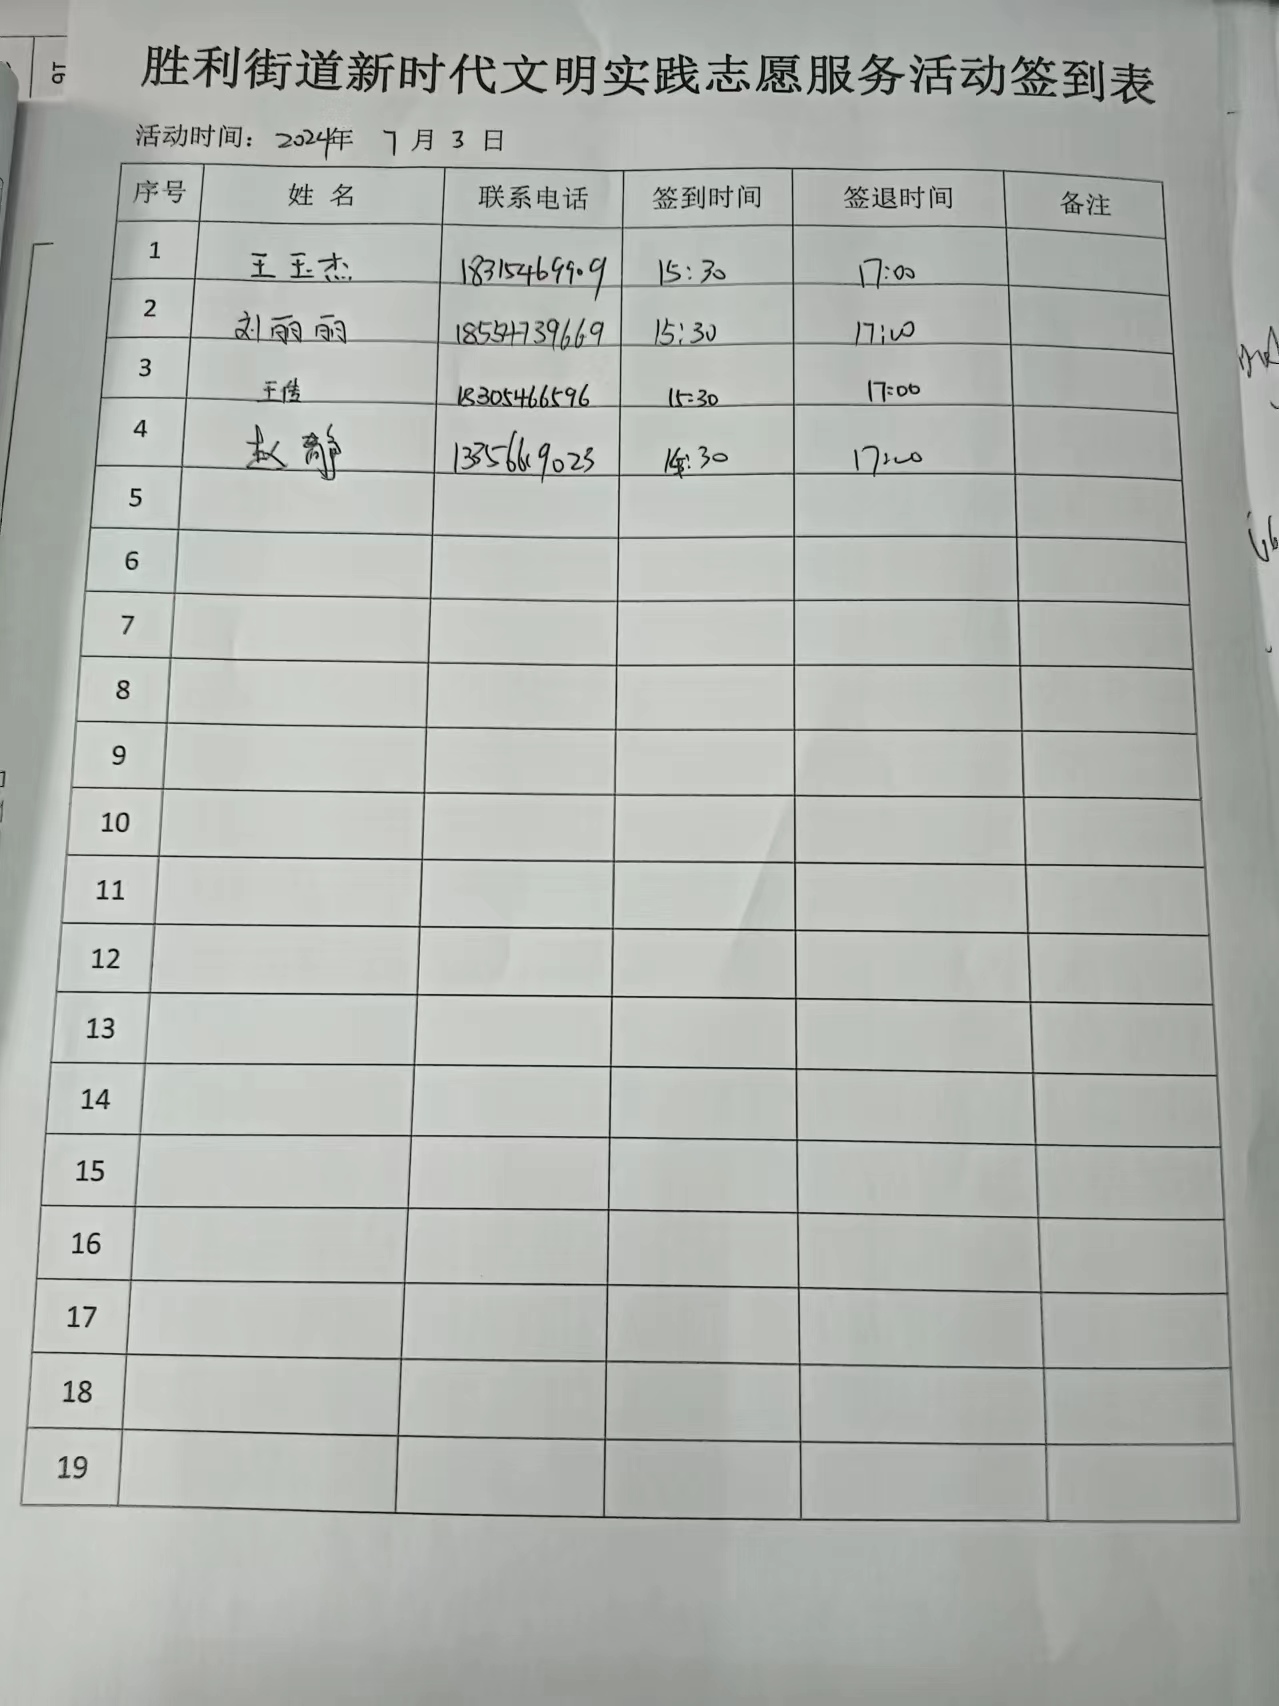 胜利街道新时代文明实践志愿服务活动签到表
活动时间：2024年 7 月 3 日
序号 姓 名 联系电话 签到时间 签退时间 备注
1 王玉杰 18315469909 15:30 17:00
2 刘丽丽 18554739669 15:30 17:00
3 王倩 18305466596 15:30 17:00
4 赵静 15:30 17:00
5
6
7
8
9
10
11
12
13
14
15
16
17
18
19